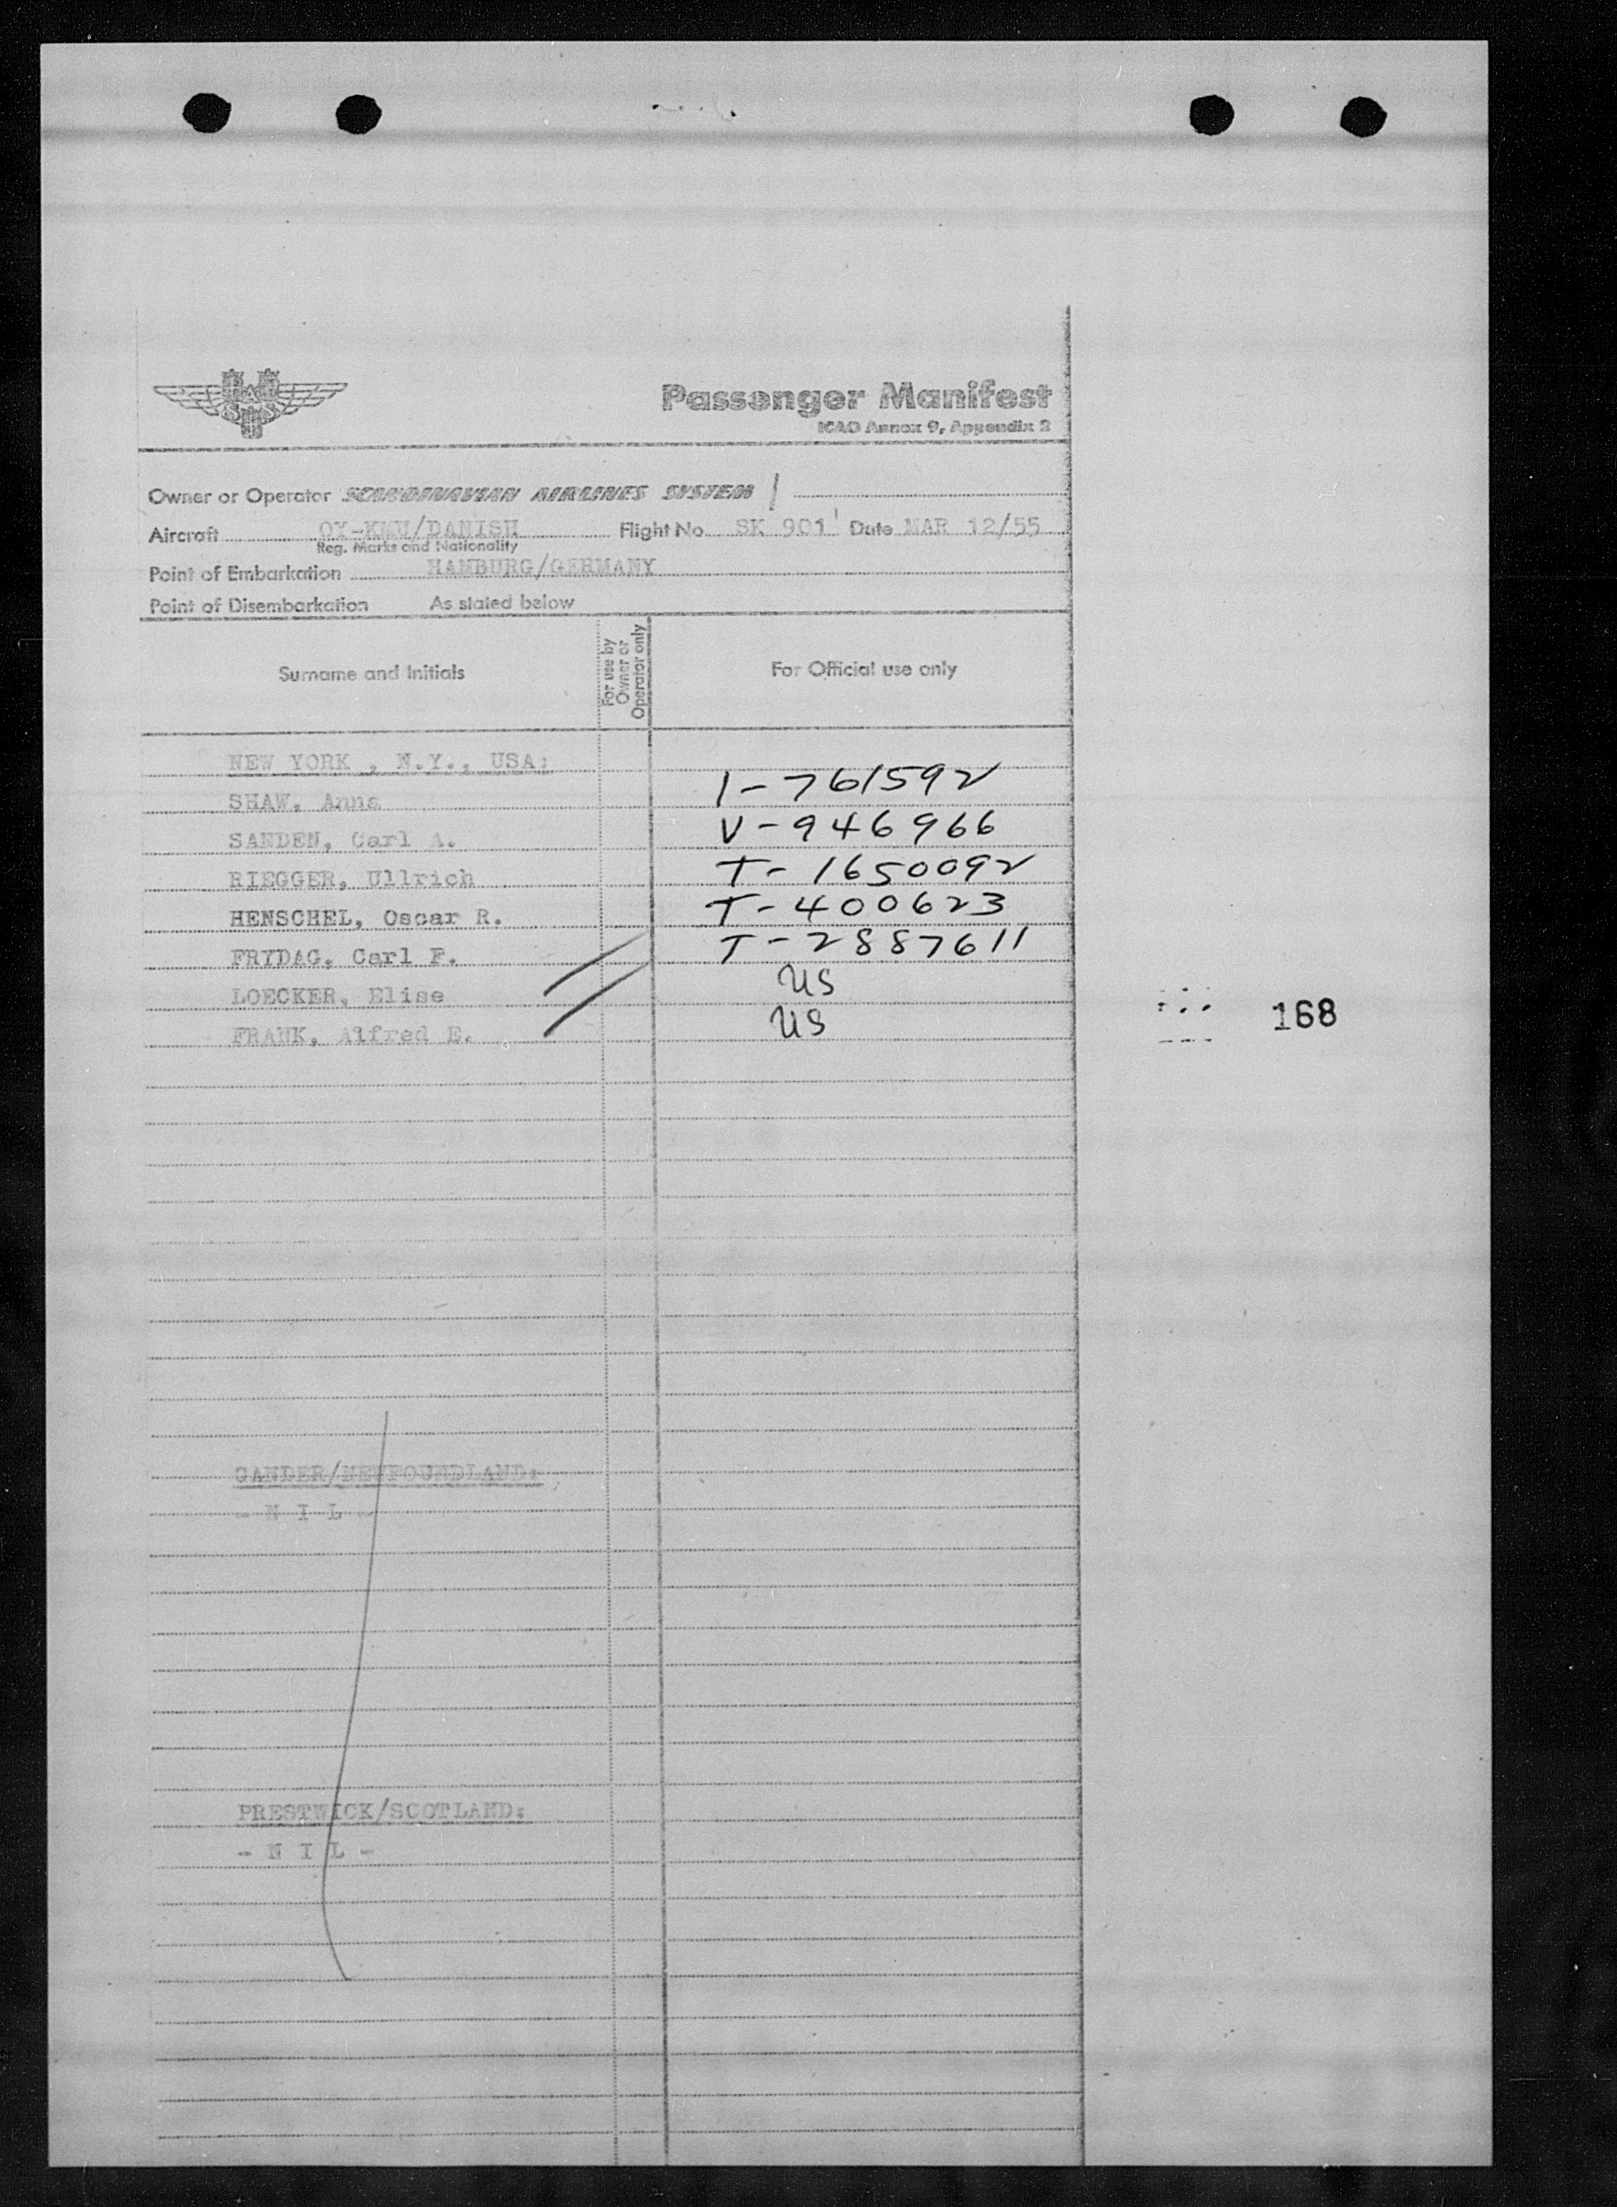 SAS
Passenger Manifest
ICAO Annex 9, Appendix 2
Owner or Operator SCANDINAVIAN AIRLINES SYSTEM
Aircraft OY-KMU/DANISH Flight No. SK 901 Date MAR 12/55
Reg. Marks and Nationality
Point of Embarkation HAMBURG/GERMANY
Point of Disembarkation As stated below
Surname and Initials
For use by
Owner or
Operator only
For Official use only
NEW YORK , N.Y., USA:
SHAW, Anna 1-761592
SANDEN, Carl A. V-946966
RIEGGER, Ullrich T-1650092
HENSCHEL, Oscar R. T-400623
FRYDAG, Carl F. T-2887611
LOECKER, Elise US
FRANK, Alfred E. US
168
GANDER/NEWFOUNDLAND:
- N I L -
PRESTWICK/SCOTLAND:
- N I L -